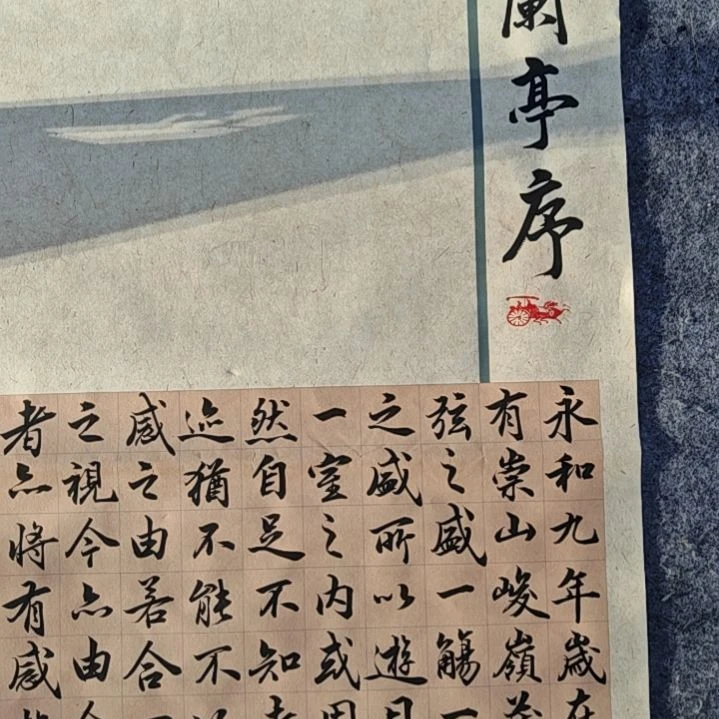 蘭亭序
永和九年歲在
有崇山峻嶺茂
弦之盛一觴一
之盛所以遊目
一室之內或因
然自足不知老
迹猶不能不
感之由若合一
之視今亦由今
者亦將有感